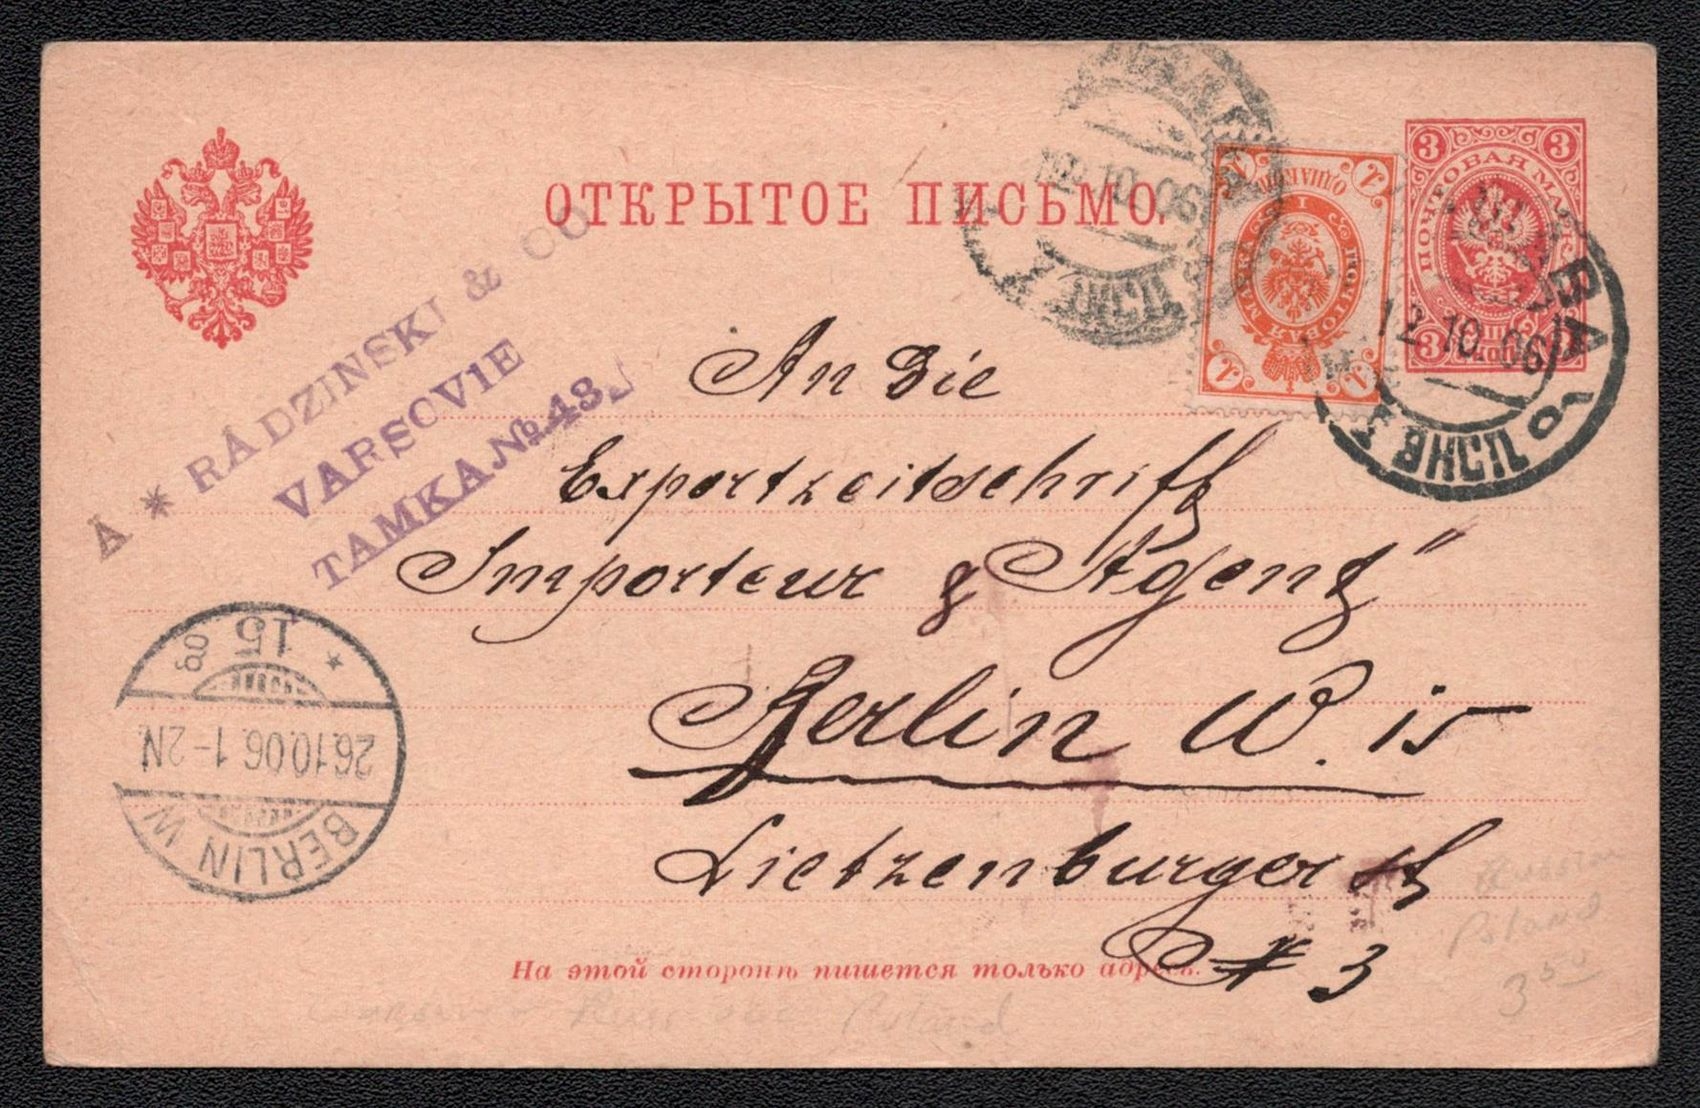 ОТКРЫТОЕ ПИСЬМО.
3 3
ПОЧТОВАЯ МАРКА
3 3
1 1
ПОЧТОВАЯ МАРКА 1 КОП.
1 1
12.10.06
12.10.06
A * RADZINSKI & CO
VARSOVIE
TAMKA № 48
An die
Exportzeitschrift
Importeur & Agent"
Berlin W. 15
Lietzenburger st
# 3
BERLIN W
26.10.06. 1-2N
* 15 g
На этой сторонѣ пишется только адресъ.
Russian
Poland
3 50
Poland